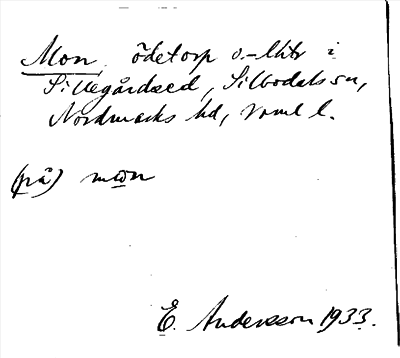 Mon, ödetorp o.
Sillegårdsed, Silbodals sn,
Nordmarks hd, Vrml l.
(på) mon
E. Andersson 1933.